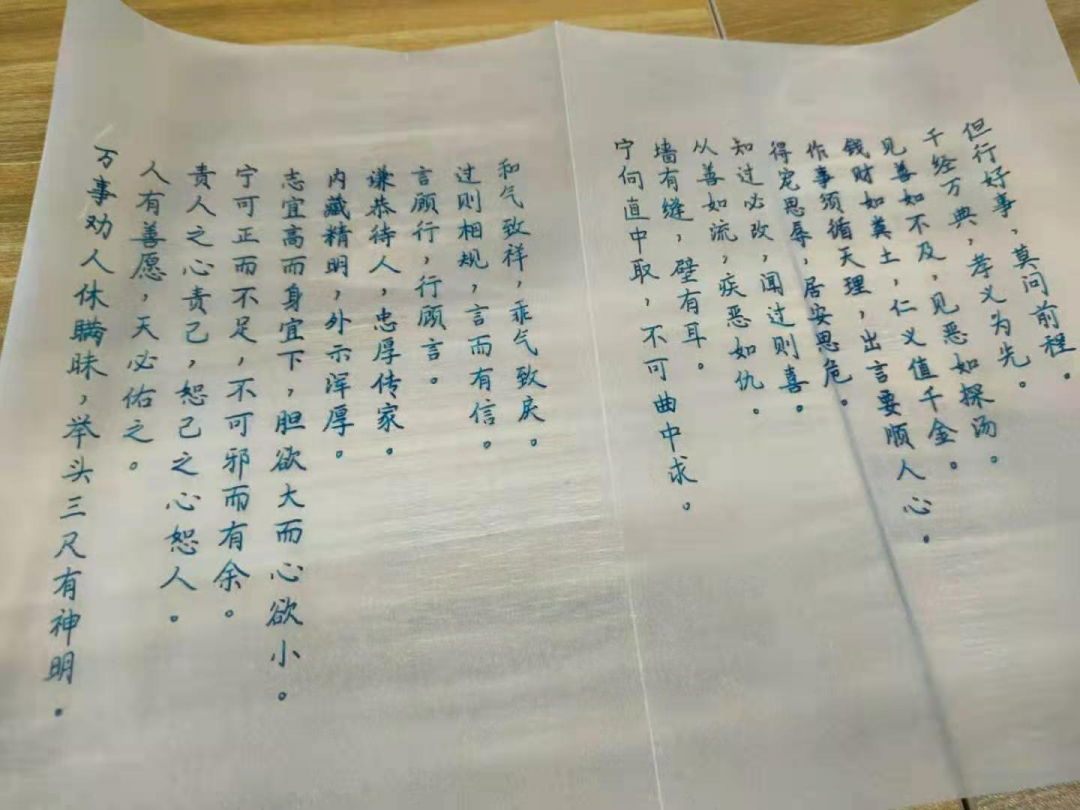 但行好事，莫问前程。
千经万典，孝义为先。
见善如不及，见恶如探汤。
钱财如粪土，仁义值千金。
作事须循天理，出言要顺人心。
得宠思辱，居安思危。
知过必改，闻过则喜。
从善如流，疾恶如仇。
墙有缝，壁有耳。
宁向直中取，不可曲中求。
和气致祥，乖气致戾。
过则相规，言而有信。
言顾行，行顾言。
谦恭待人，忠厚传家。
内藏精明，外示浑厚。
志宜高而身宜下，胆欲大而心欲小。
宁可正而不足，不可邪而有余。
责人之心责己，恕己之心恕人。
人有善愿，天必佑之。
万事劝人休瞒昧，举头三尺有神明。